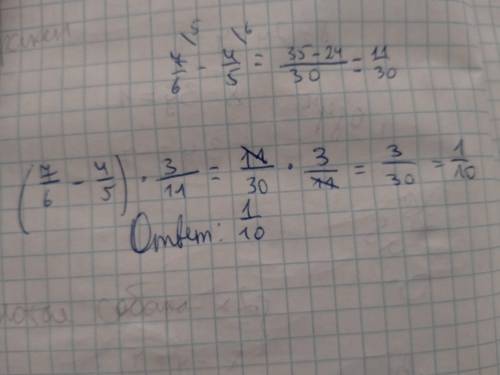 7/6 \5 - 4/5 \6 = (35-24)/30 = 11/30
(7/6 - 4/5) · 3/11 = 11/30 · 3/11 = 3/30 = 1/10
Ответ: 1/10
собака